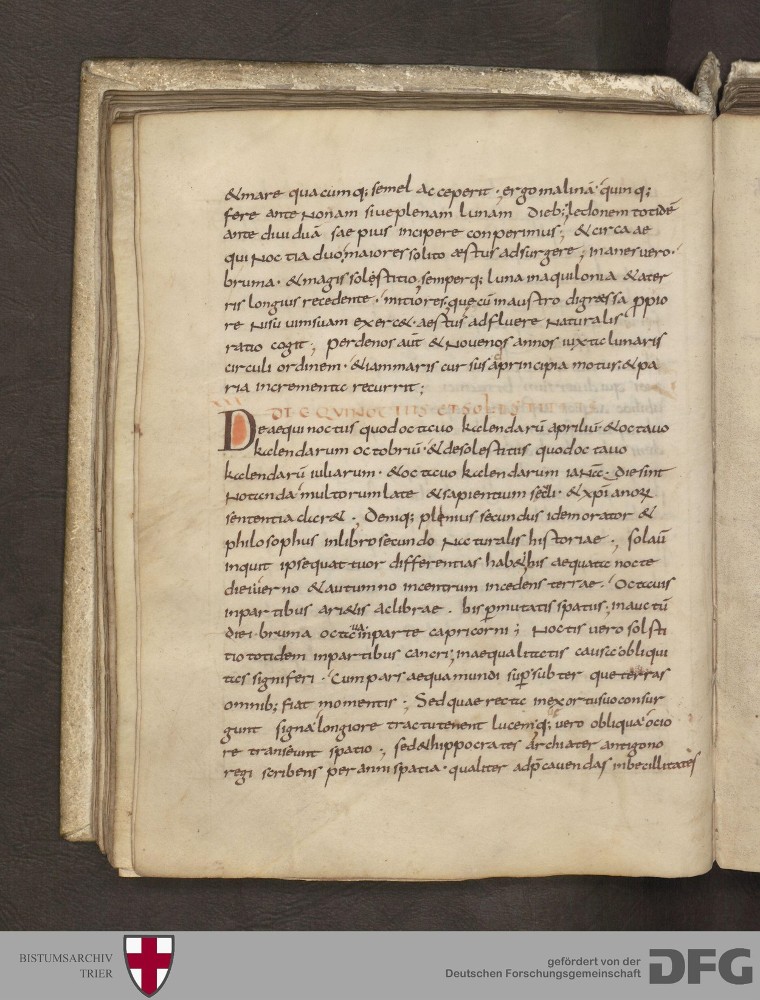 &mare quacumq; semel acceperit · ergo malinā quinq;
fere ante nonam siue plenam lunam dieb; ledonem totidē
ante diuiduā saepius incipere conperimus; & circa ae
quinoctia duo maiores solito aestus adsurgere; inanes uero ·
bruma · & magis solestitio, semperq; luna in aquilonia & a ter
ris longius recedente · mitiores, que cū in austro digressa ꝓpio
re nisu uim suam exerc& · aestus adfluere naturalis
ratio cogit; per denos aūt & nouenos annos iuxta lunaris
circuli ordinem · & iam maris cursus a principia motus · & pa
ria incrementa recurrit;
XXX DE EQUINOCTIIS ET SOLESTITIIS
De aequinoctus quod octauo kalendarū apriliū · & octauo
kalendarum octobriū · & de solestitiis quod octauo
kalendarū iuliarum · & octauo kalendarum ianr · die sint
notanda multorum late & sapientium secli · & xp̄ianorꝝ
sententia clar& · Deniq; plenius secundus idem orator &
philosophus in libro secundo naturalis historiae ·, sol aū
inquit ipse quattuor differentias hab& bis aequata nocte
die uerno & autumno in centrum incedens terrae · Octauis
in partibus ari&is ac librae . bis ꝑmutatis spatus; in auctū
diei · bruma octaua in parte capricorni; Noctis uero solsti
tio totidem in partibus cancri; inaequalitatis causa obliqui
tas signiferi · Cum pars aequa mundi suꝑ subter que terras
omnib; fiat momentis · Sed quae recta in exortu suo consur
gunt signa longiore tractu tenent lucem q; uero obliqua ocio
re transeunt spatio ·, sed & hippocrates archiater antigono
regi scribens per anni spatia · qualiter adp̄cauendas inbecillitates
BISTUMSARCHIV
TRIER
gefördert von der
Deutschen Forschungsgemeinschaft
DFG